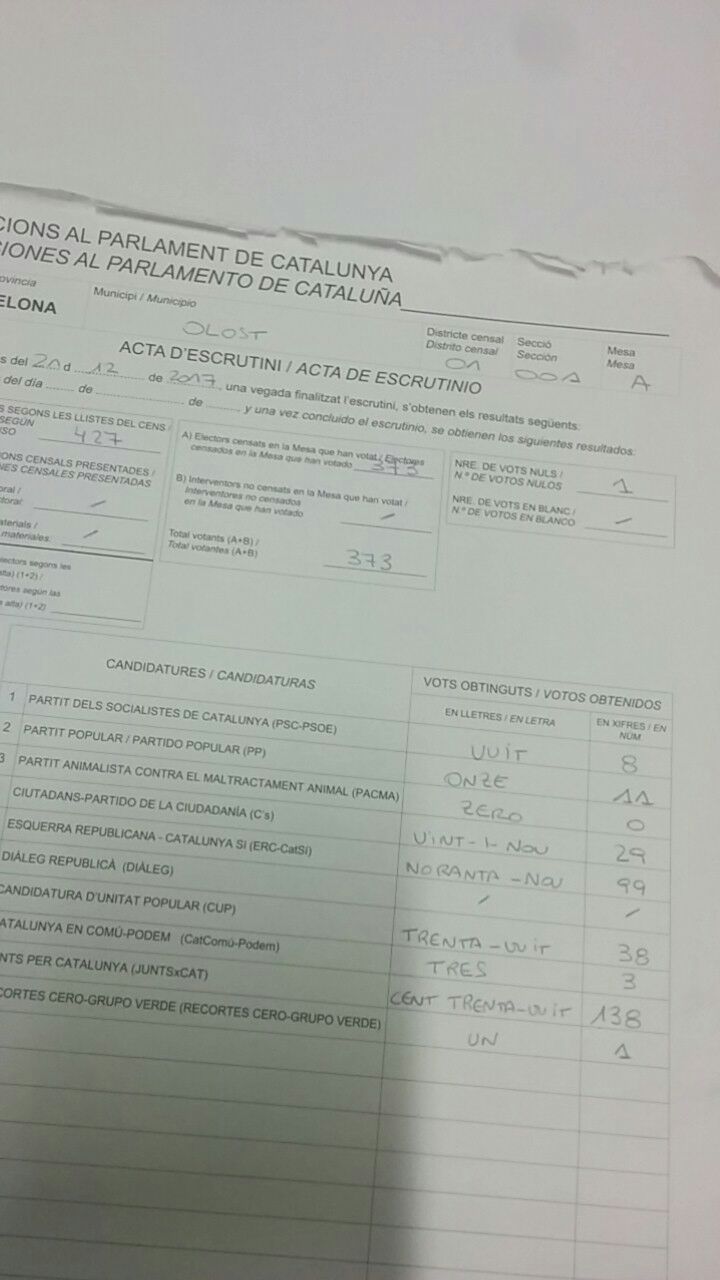 CIONS AL PARLAMENT DE CATALUNYA
CIONES AL PARLAMENTO DE CATALUÑA
ovincia
ELONA
Municipi / Municipio
OLOST
Districte censal
Distrito censal
01
Secció
Sección
001
Mesa
Mesa
A
ACTA D'ESCRUTINI / ACTA DE ESCRUTINIO
s del 21 d 12 de 2017, una vegada finalitzat l'escrutini, s'obtenen els resultats següents:
del día ........ de ........ de ........ y una vez concluido el escrutinio, se obtienen los siguientes resultados:
S SEGONS LES LLISTES DEL CENS /
SEGÚN
NSO
427
ONS CENSALS PRESENTADES /
NES CENSALES PRESENTADAS
oral /
toral:
/
aterials /
materiales:
/
lectors segons les
alta) (1+2) /
tores según las
alta) (1+2)
A) Electors censats en la Mesa que han votat / Electores
censados en la Mesa que han votado
373
B) Interventors no censats en la Mesa que han votat /
Interventores no censados
en la Mesa que han votado
/
Total votants (A+B) /
Total votantes (A+B)
373
NRE. DE VOTS NULS /
N.º DE VOTOS NULOS
1
NRE. DE VOTS EN BLANC /
N.º DE VOTOS EN BLANCO
/
CANDIDATURES / CANDIDATURAS
VOTS OBTINGUTS / VOTOS OBTENIDOS
EN LLETRES / EN LETRA
EN XIFRES / EN NÚM
1 PARTIT DELS SOCIALISTES DE CATALUNYA (PSC-PSOE) VUIT 8
2 PARTIT POPULAR / PARTIDO POPULAR (PP) ONZE 11
3 PARTIT ANIMALISTA CONTRA EL MALTRACTAMENT ANIMAL (PACMA) ZERO 0
CIUTADANS-PARTIDO DE LA CIUDADANÍA (C's) VINT-I-NOU 29
ESQUERRA REPUBLICANA - CATALUNYA SÍ (ERC-CatSí) NORANTA-NOU 99
DIÀLEG REPUBLICÀ (DIÀLEG) / /
CANDIDATURA D'UNITAT POPULAR (CUP) TRENTA-VUIT 38
ATALUNYA EN COMÚ-PODEM (CatComú-Podem) TRES 3
NTS PER CATALUNYA (JUNTSxCAT) CENT TRENTA-VUIT 138
CORTES CERO-GRUPO VERDE (RECORTES CERO-GRUPO VERDE) UN 1